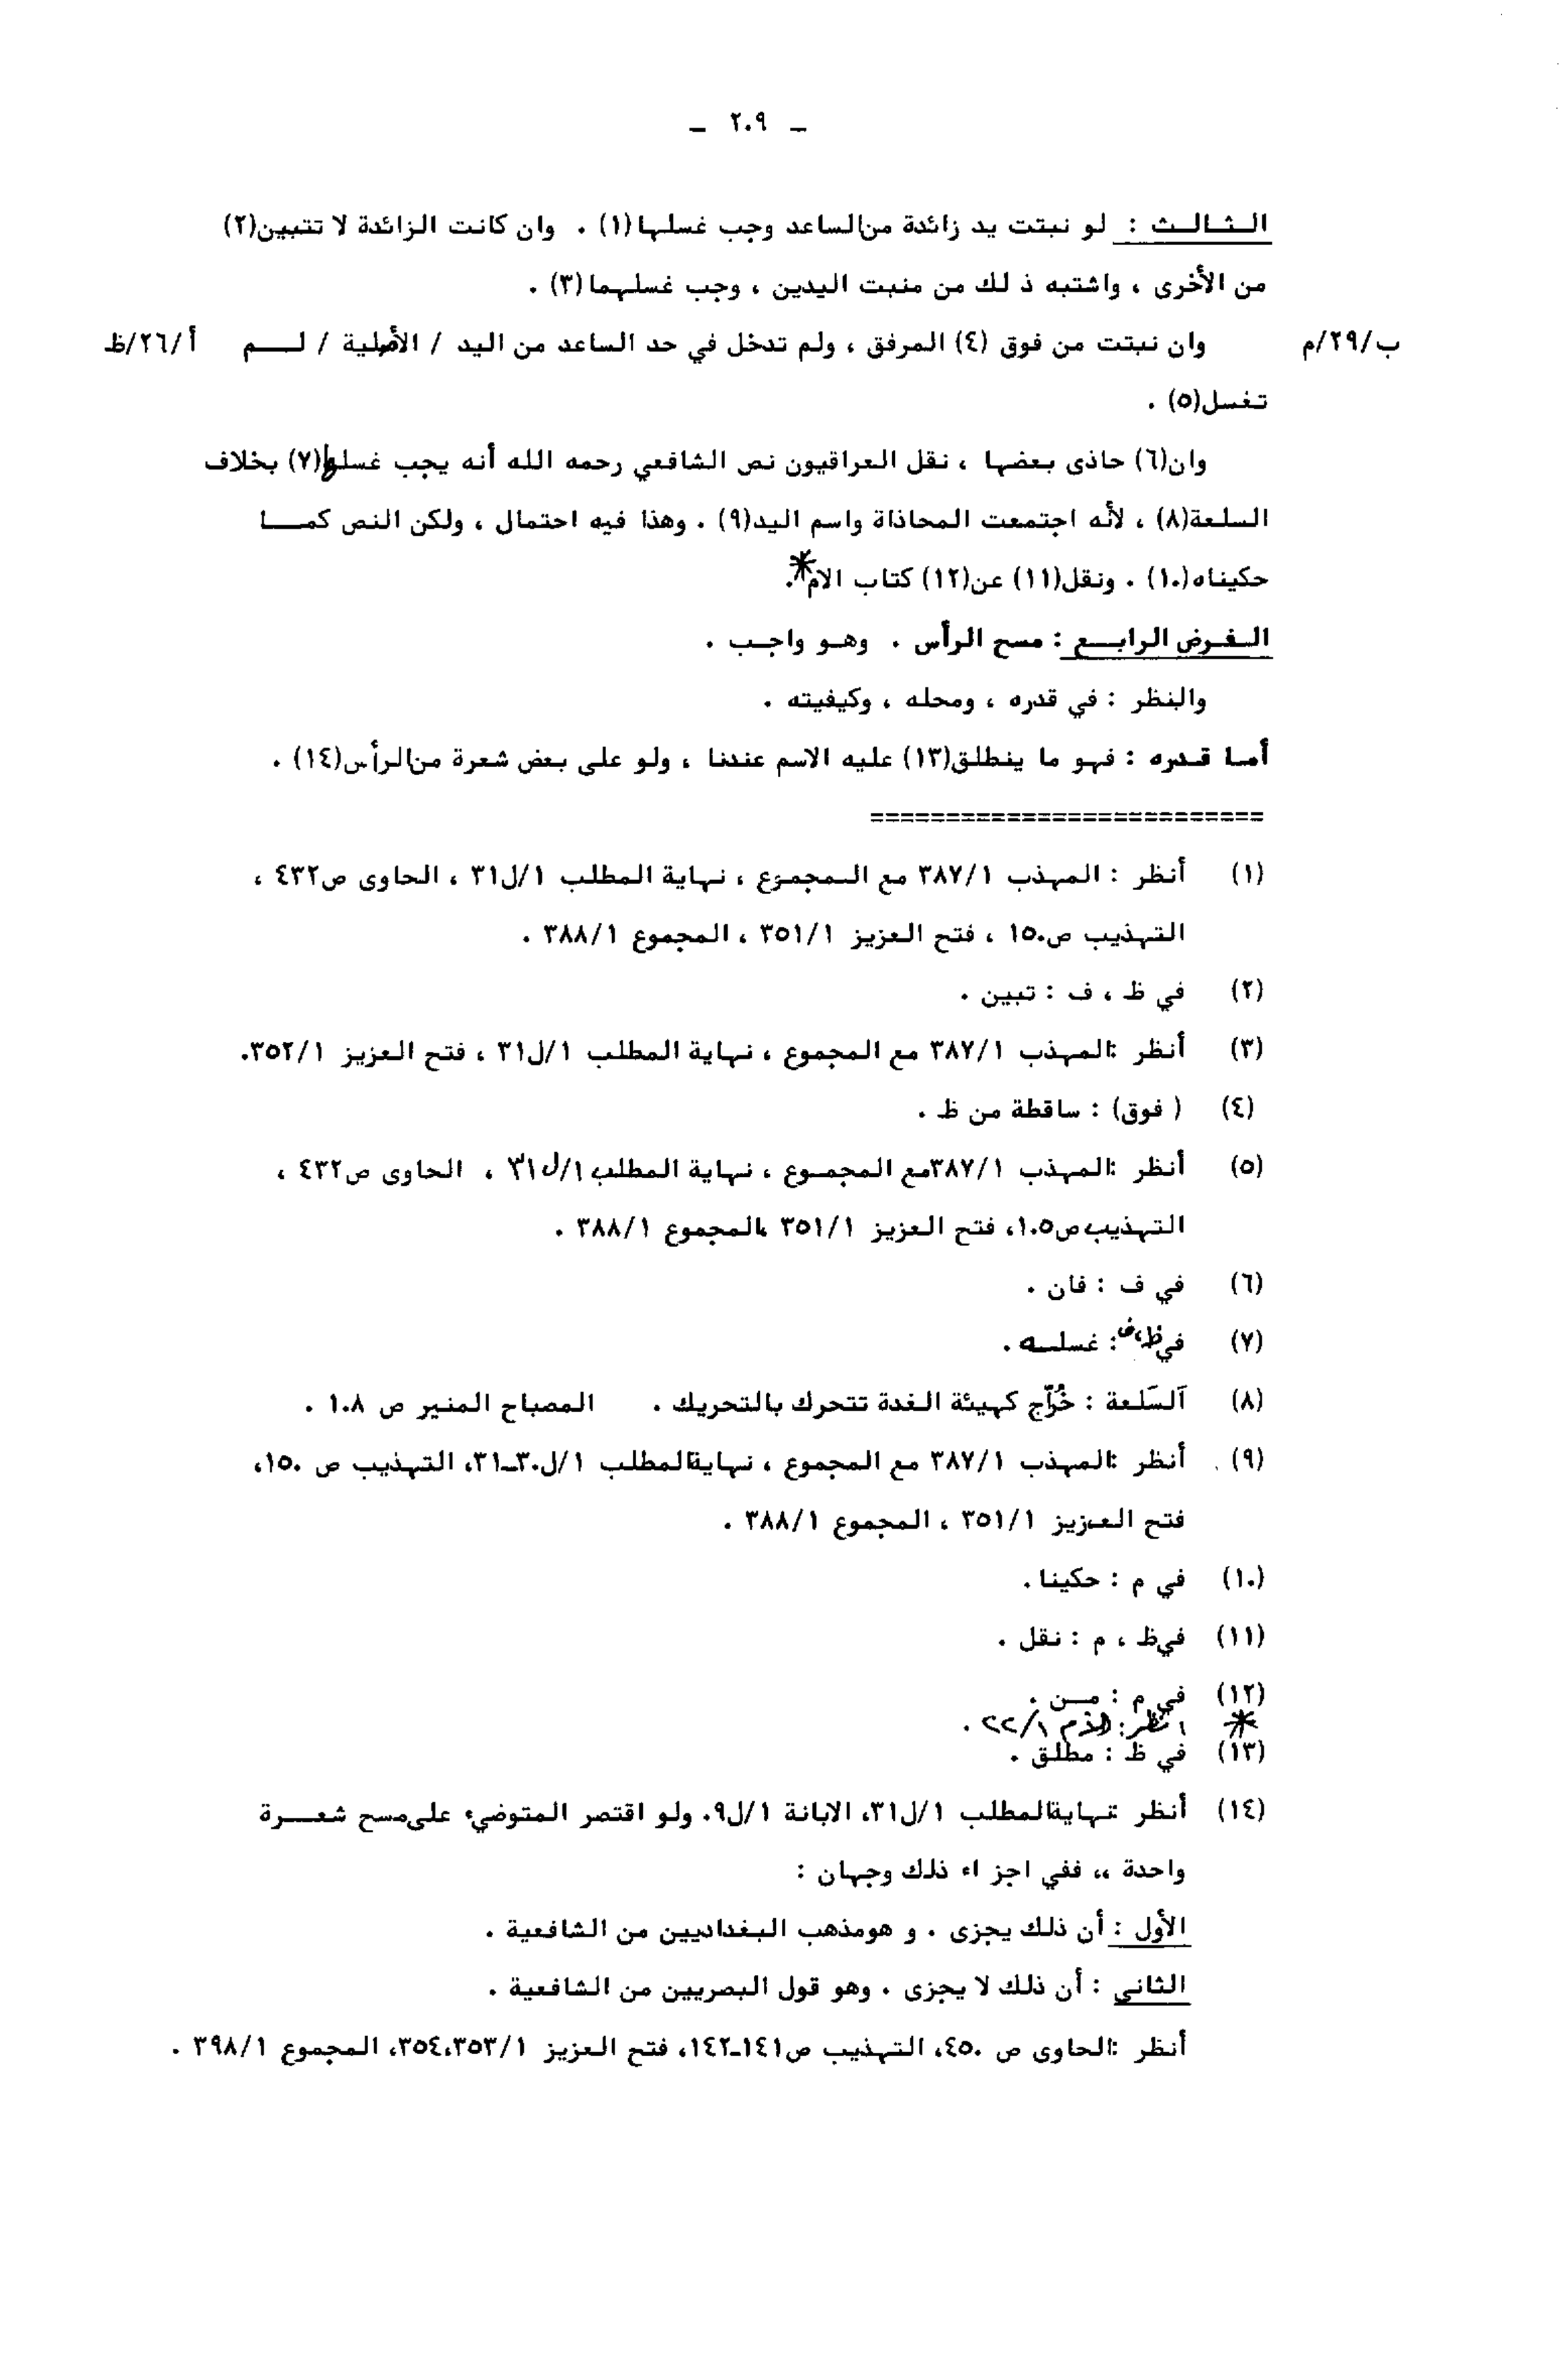 - ٢٠٩ -
الـثـالـث : لو نبتت يد زائدة من الساعد وجب غسلها (١) . وان كانت الزائدة لا تتبين(٢)
من الأخرى ، واشتبه ذ لك من منبت اليدين ، وجب غسلهما (٣) .
ب/٢٩/م وان نبتت من فوق (٤) المرفق ، ولم تدخل في حد الساعد من اليد / الأصلية / لـــم أ/٢٦/ظ
تغسل(٥) .
وان(٦) حاذى بعضها ، نقل العراقيون نص الشافعي رحمه الله أنه يجب غسلها(٧) بخلاف
السلعة(٨) ، لأنه اجتمعت المحاذاة واسم اليد(٩) . وهذا فيه احتمال ، ولكن النص كمـــا
حكيناه(١٠) . ونقل(١١) عن(١٢) كتاب الام*.
الـفـرض الرابـــع : مسح الرأس . وهـو واجـب .
والنظر : في قدره ، ومحله ، وكيفيته .
أمـا قـدره : فهو ما ينطلق(١٣) عليه الاسم عندنا ، ولو على بعض شعرة من الرأس(١٤) .
==========================
(١) أنظر : المهذب ٣٨٧/١ مع الـمجموع ، نهاية المطلب ١/ل٣١ ، الحاوى ص٤٣٢ ،
التهذيب ص١٥٠ ، فتح العزيز ٣٥١/١ ، المجموع ٣٨٨/١ .
(٢) في ظ ، ف : تبين .
(٣) أنظر :المهذب ٣٨٧/١ مع المجموع ، نهاية المطلب ١/ل٣١ ، فتح العزيز ٣٥٢/١.
(٤) ( فوق) : ساقطة من ظ .
(٥) أنظر :المهذب ٣٨٧/١مع المجمـوع ، نهاية المطلب ١/ل٣١ ، الحاوى ص٤٣٢ ،
التهذيب ص١٠٥، فتح العزيز ٣٥١/١ ،المجموع ٣٨٨/١ .
(٦) في ف : فان .
(٧) في ظ،ف : غسلــه .
(٨) اَلسَلعة : خُرّاج كهيئة الغدة تتحرك بالتحريك . المصباح المنير ص ١٠٨ .
(٩) أنظر :المهذب ٣٨٧/١ مع المجموع ، نهاية المطلب ١/ل٣٠-٣١، التهذيب ص ١٥٠،
فتح العزيز ٣٥١/١ ، المجموع ٣٨٨/١ .
(١٠) في م : حكينا .
(١١) في ظ ، م : نقل .
(١٢) في م : مـــن .
* انظر : الأم ٢٢/١ .
(١٣) في ظ : مطلق .
(١٤) أنظر :نهاية المطلب ١/ل٣١، الابانة ١/ل٩. ولو اقتصر المتوضيء على مسح شعـــرة
واحدة ،، ففي اجز اء ذلك وجهان :
الأول : أن ذلك يجزى . و هو مذهب البغداديين من الشافعية .
الثانى : أن ذلك لا يجزى . وهو قول البصريين من الشافعية .
أنظر :الحاوى ص ٤٥٠، التهذيب ص١٤١-١٤٢، فتح العزيز ٣٥٤،٣٥٣/١، المجموع ٣٩٨/١ .